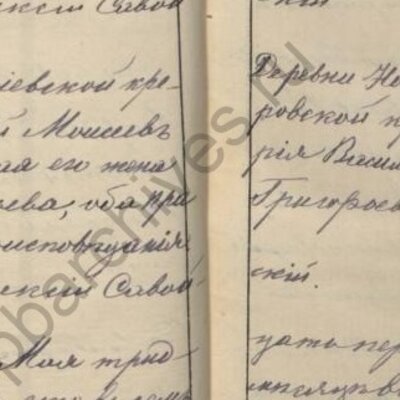 ксій Савой
іевской кре-
й Моисеевъ
ная его жена
ева, оба пра
исповѣданія
ксій Савой
Мая трид
скій
Деревни Но
ровской
рія Васил
Григорьев
скій.
цать пер
spbarchives.ru